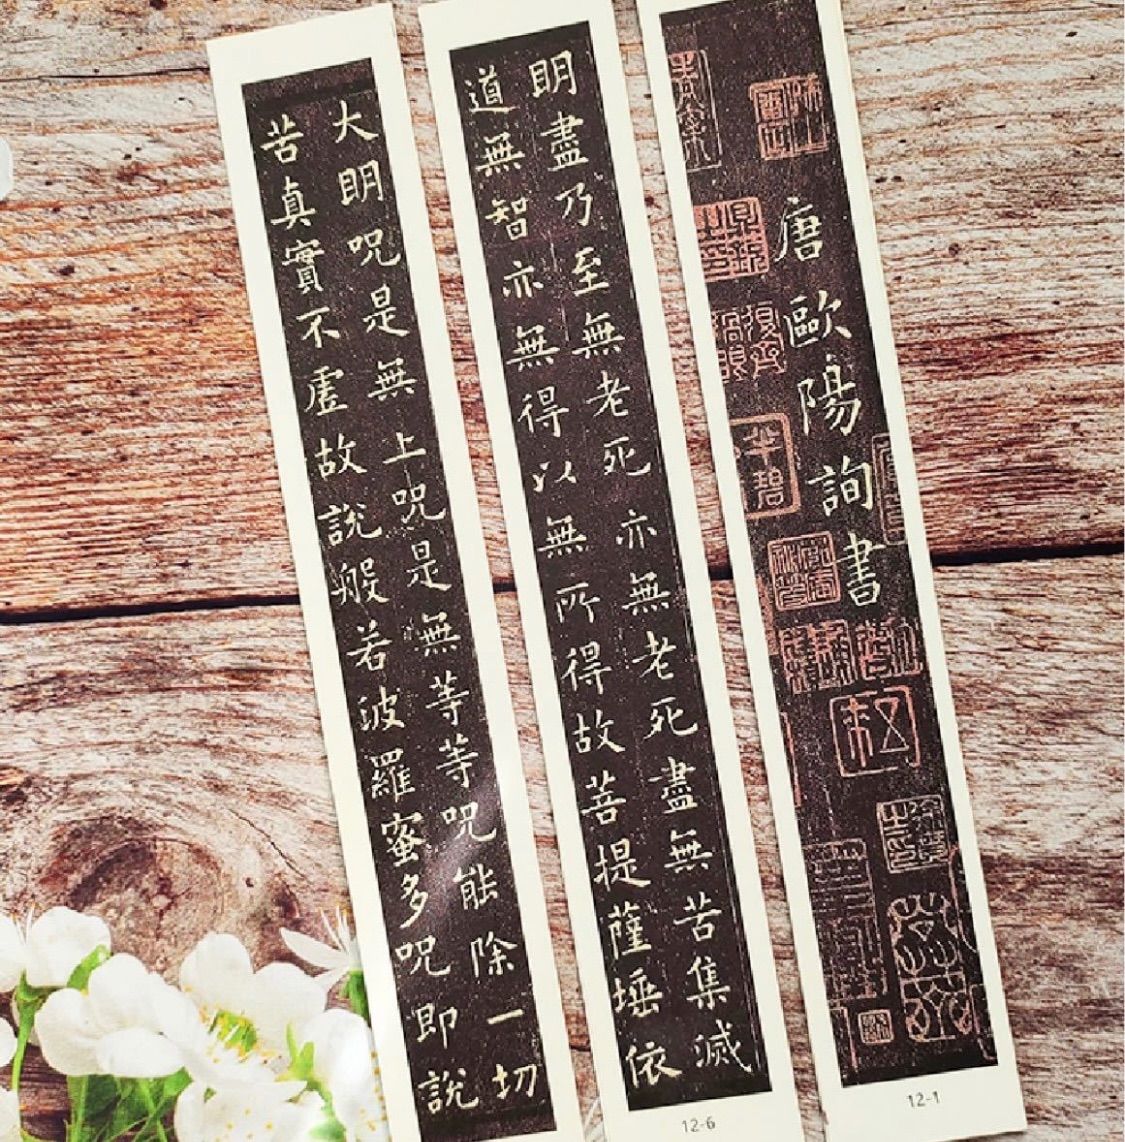 唐歐陽詢書
12-1
明盡乃至無老死亦無老死盡無苦集滅
道無智亦無得以無所得故菩提薩埵依
12-6
大明呪是無上呪是無等等呪能除一切
苦真實不虛故說般若波羅蜜多呪即說